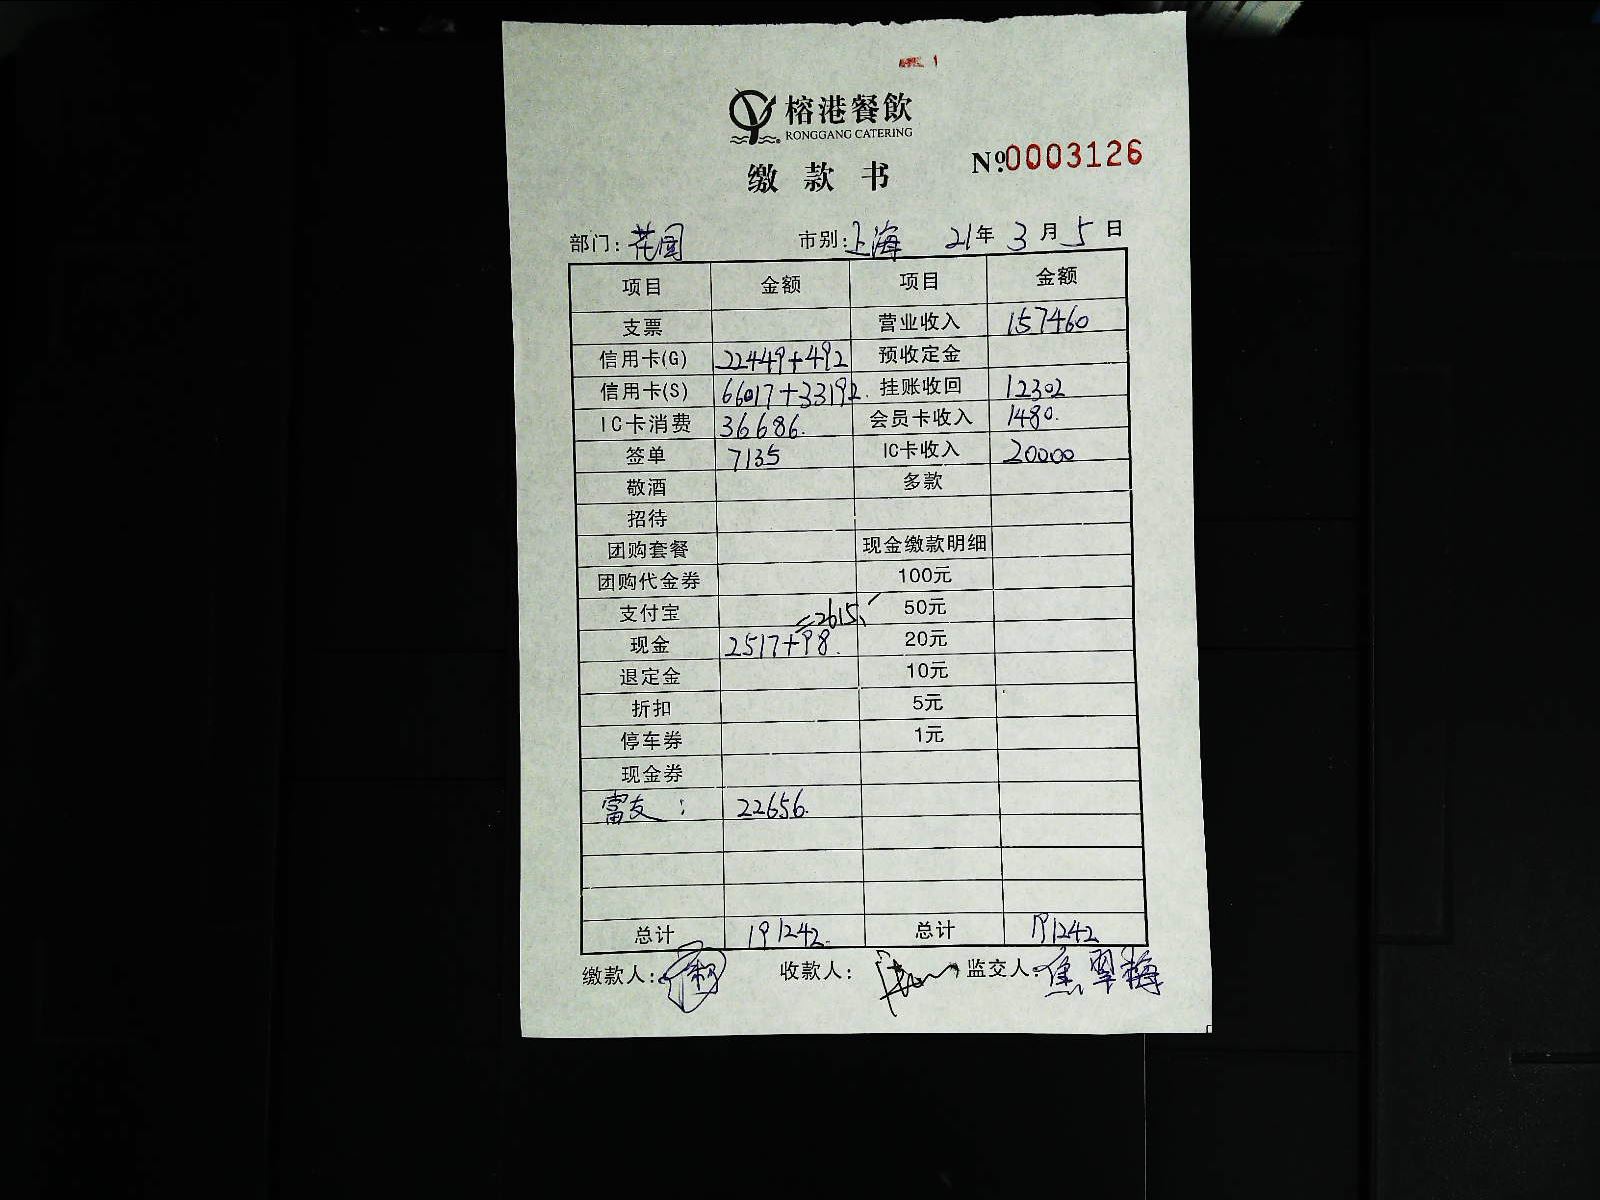 榕港餐飲
RONGGANG CATERING
缴款书
No.0003126
部门:花园 市别:上海 21年3月5日
项目 金额 项目 金额
支票 营业收入 157460
信用卡(G) 22449+492 预收定金
信用卡(S) 66017+33192. 挂账收回 12302
IC卡消费 36686. 会员卡收入 1480.
签单 7135 IC卡收入 20000
敬酒 多款
招待
团购套餐 现金缴款明细
团购代金券 100元
支付宝 =2615. 50元
现金 2517+98. 20元
退定金 10元
折扣 5元
停车券 1元
现金券
富友: 22656.
总计 191242. 总计 191242
缴款人: 收款人: 监交人:焦翠梅